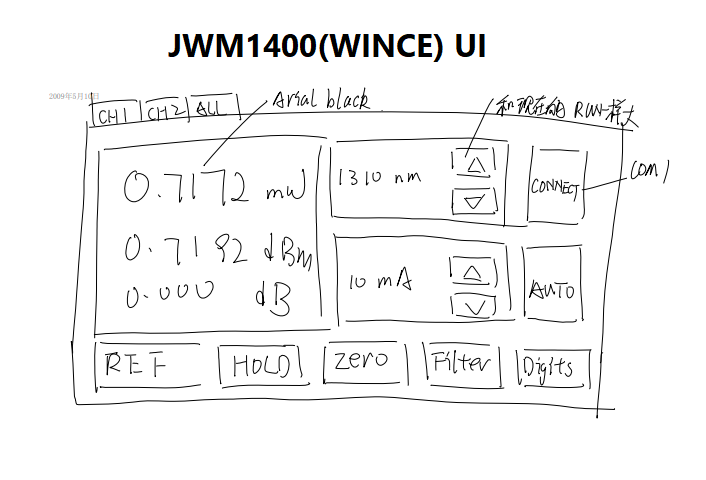 JWM1400(WINCE) UI
2009年5月10日
CH1 CH2 ALL
Arial black
和现在的 RUN一样大
0.7172 mW
0.7192 dBm
0.000 dB
1310 nm
CONNECT
COM1
10 mA
AUTO
REF HOLD zero Filter Digits